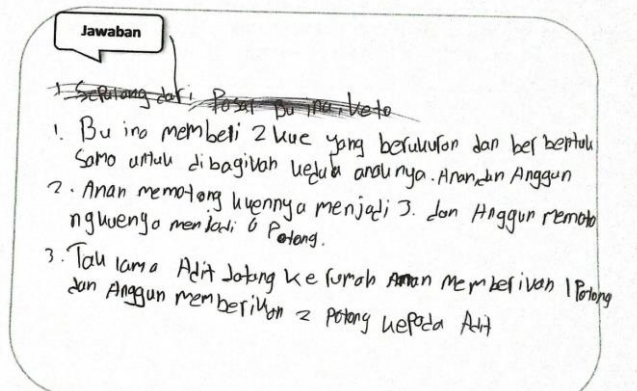 Jawaban
1. Sepulang dari Pasar Bu ina, ke to
1. Bu ina membeli 2 kue yang berukuran dan ber bentuk
Sama untuk dibagikan kedua anaknya. Anan dan Anggun
2. Anan memotong kuennya menjadi 3. dan Anggun memoto
ngkuenya menjadi 6 Potong.
3. Tak lama Adit datang ke rumah Anan memberikan 1 Potong
dan Anggun memberikan 2 potong kepada Adit